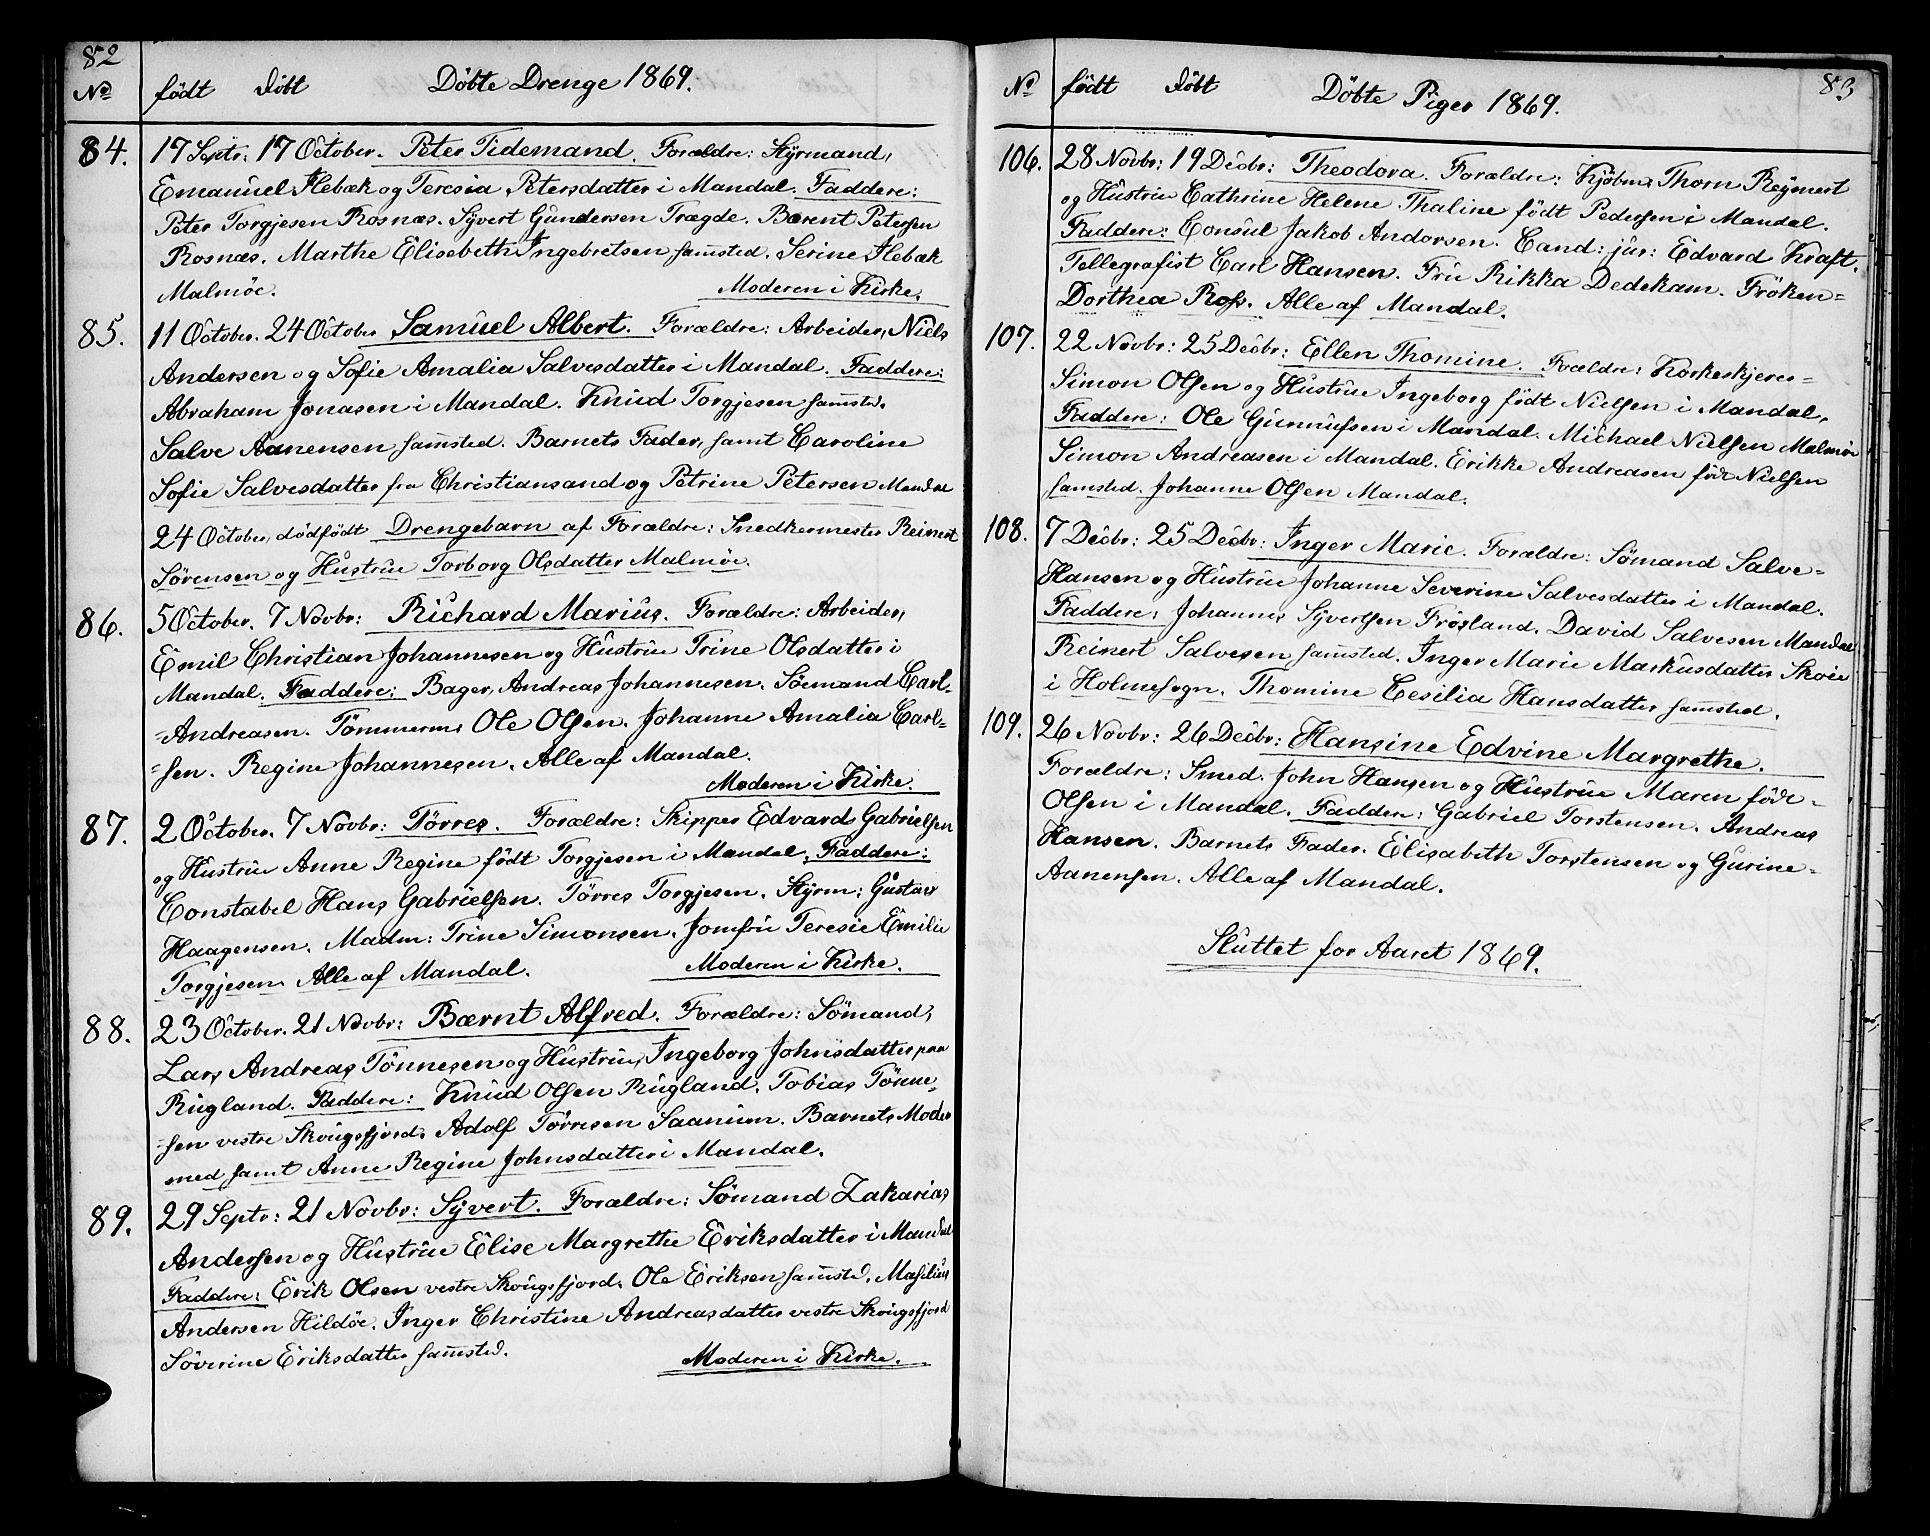 82
No födt döbt Döbte Drenge 1869.
84. 17 Septr: 17 October. Peter Tidemand. Forældre: Styrmand,
Emanuel Flebæk og Teresia Petersdatter i Mandal. Faddere:
Peter Torgjesen Rosnæs. Syvert Gundersen Trægde. Bærent Petersen
Rosnæs. Marthe Elisebeth Ingebretsen sammested. Serine Flebæk
Malmöe. Moderen i Kirke.
85. 11 October. 24 October Samuel Albert. Forældre: Arbeider, Niels
Andersen og Sofie Amalia Salvesdatter i Mandal. Faddere:
Abraham Jonasen i Mandal. Knud Torgjesen samsted.
Salve Aanensen samsted. Barnets Fader, samt Caroline
Sofie Salvesdatter fra Christiansand og Petrine Petersen Mandal
24 October, dödfödt Drengebarn af Forældre: Snedkermester Reinert
Sörensen og Hustrue Torborg Olsdatter Malmöe.
86. 5 October. 7 Novbr: Richard Marius. Forældre: Arbeider,
Emil Christian Johannesen og Hustrue Trine Olsdatter i
Mandal. Faddere: Bager, Andreas Johannesen. Söemand Carl-
=Andreasen. Tömmerm, Ole Olsen. Johanne Amalia Carl=
=sen. Regine Johannesen. Alle af Mandal.
Moderen i Kirke.
87. 2 October. 7 Novbr: Törres. Forældre: Skipper Edvard Gabrielsen
og Hustrue Anne Regine födt Torgjesen i Mandal. Faddere:
Constabel Hans Gabrielsen. Törres Torgjesen. Styrm: Gustav
Haagensen. Madm: Trine Simonsen. Jomfru Teresie Emilie
Torgjesen. Alle af Mandal. Moderen i Kirke.
88. 23 October. 21 Novbr: Bærnt Alfred. Forældre: Sömand,
Lars Andreas Tönnesen og Hustrue, Ingeborg Johnsdatter paa
Rugland. Faddere: Knud Olsen Rugland. Tobias Tönne=
=sen vestre Skougsfjord. Adolf Törresen Saanum. Barnets Moder
med samt Anne Regine Johnsdatter i Mandal.
89. 29 Septr: 21 Novbr: Syvert. Forældre: Sömand Zakarias
Andersen og Hustrue Elise Margrethe Eriksdatter i Mandal
Faddere: Erik Olsen vestre Skougsfjord. Ole Eriksen samsted. Masilius
Andersen Hildöe. Inger Christine Andreasdatter vestre Skougsfjord
Söverine Eriksdatter samsted. Moderen i Kirke.
83
No födt döbt Döbte Piger 1869.
106. 28 Novbr: 19 Decbr: Theodora. Forældre: Kjöbm, Thorn Reymert
og Hustrue Cathrine Helene Thaline födt Pedersen i Mandal.
Faddere: Consul Jakob Andorsen. Cand: jur: Edvard Kraft.
Tellegrafist Carl Hansen. Fru Rikka Dedekam. Fröken=
Dorthea Ross. Alle af Mandal.
107. 22 Novbr: 25 Decbr: Ellen Thomine. Forældre: Korkeskjerer=
Simon Olsen og Hustrue Ingeborg födt Nielsen i Mandal,
Faddere: Ole Gunnufsen i Mandal. Michael Nielsen Malmöe
Simon Andreasen i Mandal. Erikke Andreasen föd Nielsen
samsted. Johanne Olsen Mandal.
108. 7 Decbr: 25 Decbr: Inger Marie. Forældre: Sömand Salve=
Hansen og Hustrue Johanne Severine Salvesdatter i Mandal.
Faddere, Johannes Syvertsen Frösland. David Salvesen Mandal
Reinert Salvesen samsted. Inger Marie Markusdatter Skoie
i Holmesogn. Thomine Cesilia Hansdatter samsted.
109. 26 Novbr: 26 Decbr: Hansine Edvine Margrethe.
Forældre: Smed. John Hansen og Hustrue Maren föd-
Olsen i Mandal. Faddere: Gabriel Torstensen. Andreas
Hansen. Barnets Fader. Elisabeth Torstensen og Gurine-
Aanensen. Alle af Mandal.
Sluttet for Aaret 1869.